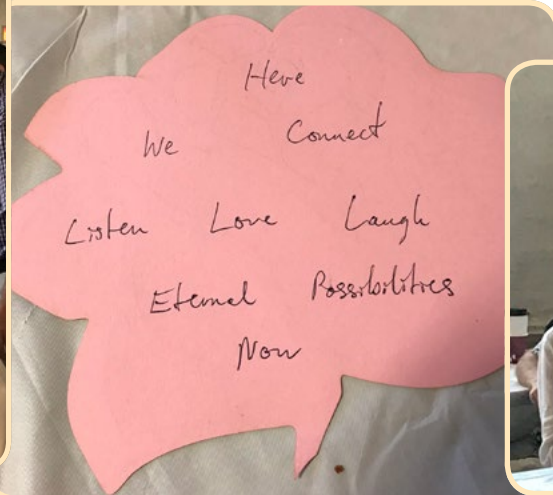 Here
We Connect
Listen Love Laugh
Eternal Possibilities
Now